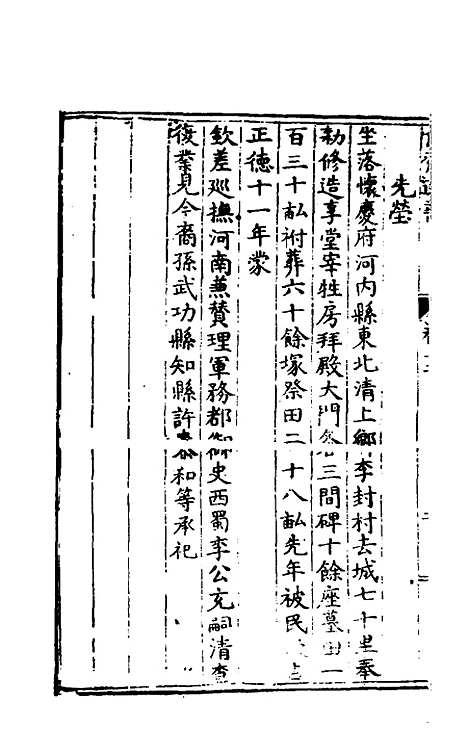 先塋
坐落懷慶府河内縣東北清上鄉李封村去城七十里奉
勑修造享堂宰牲房拜殿大門各三間碑十餘座墓田一
百三十畝祔葬六十餘塚祭田二十八畝先年被民
正德十一年蒙
欽差巡撫河南兼贊理軍務都御史西蜀李公充嗣清查
復業見今裔孫武功縣知縣許泰和等承祀